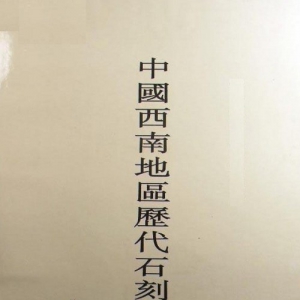 中國西南地區歷代石刻